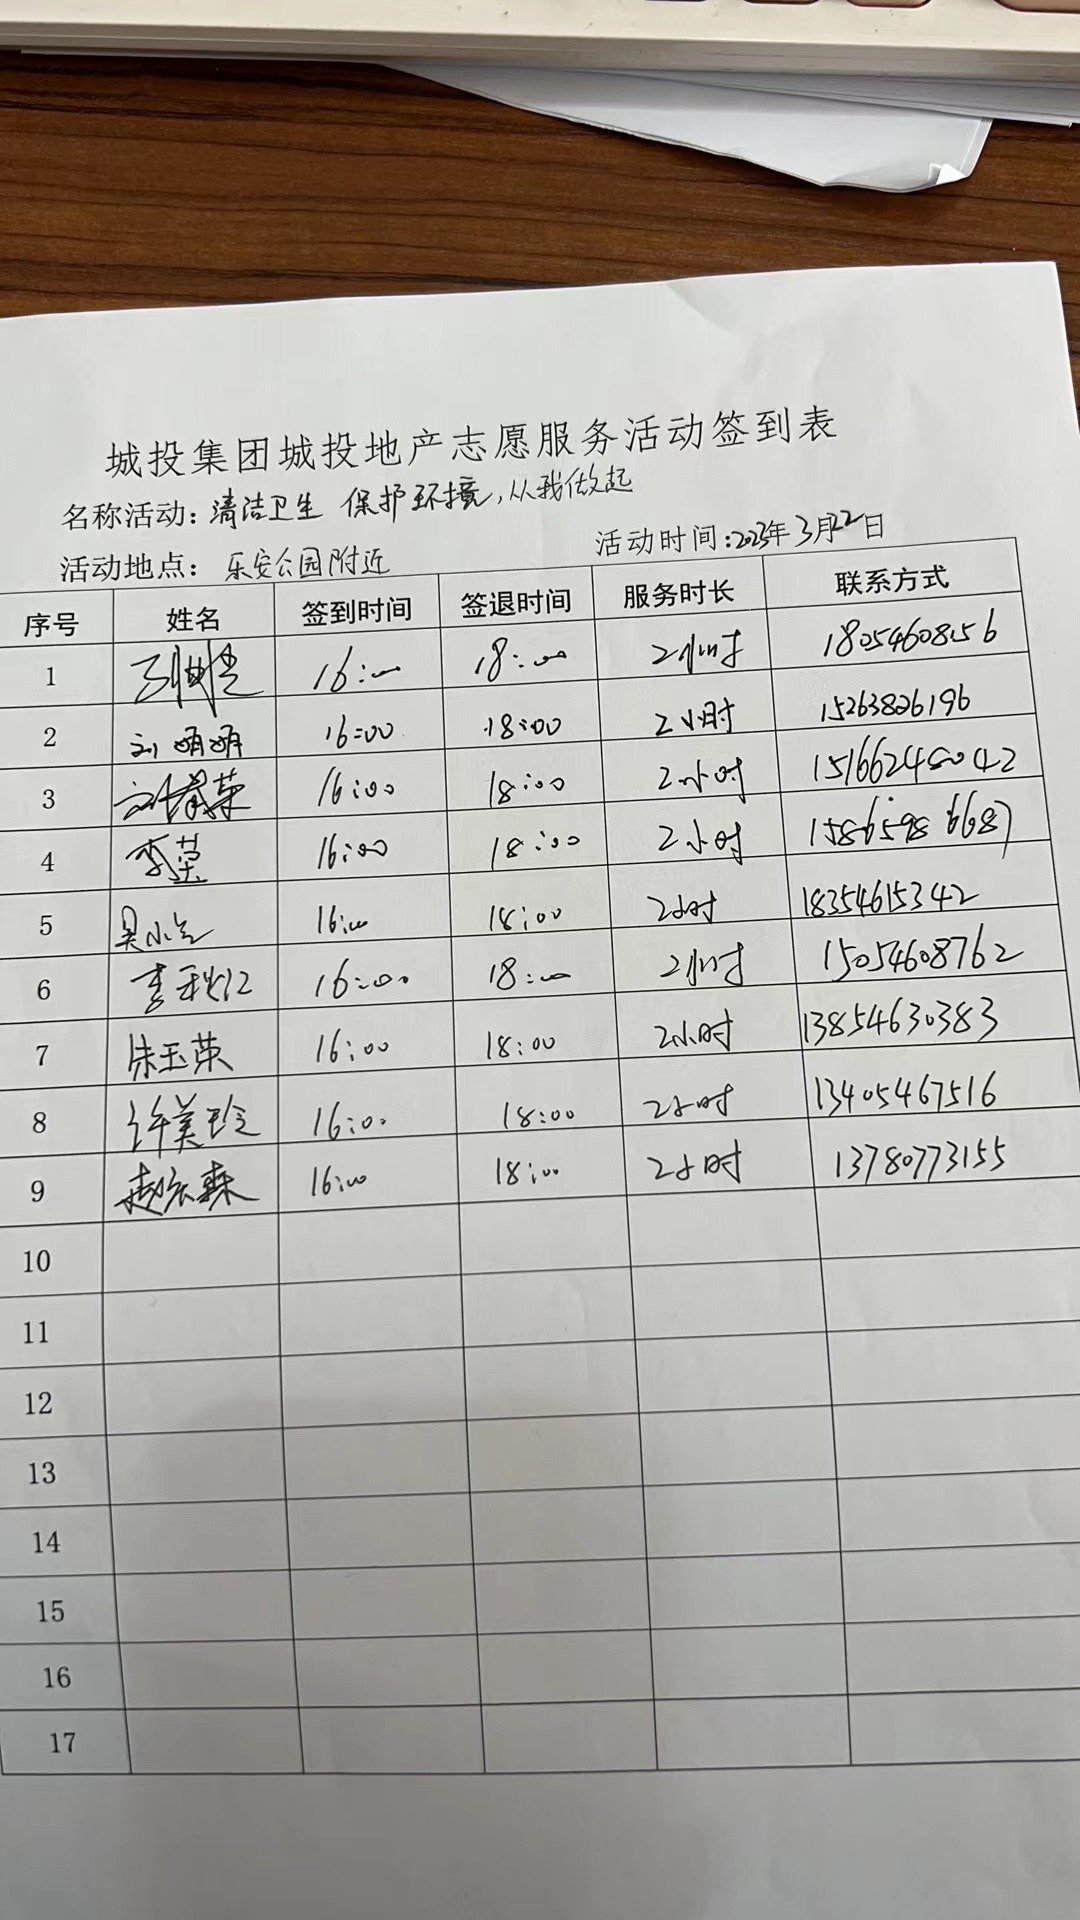 城投集团城投地产志愿服务活动签到表
名称活动：清洁卫生 保护环境，从我做起
活动地点：乐安公园附近 活动时间：2023年3月22日
序号 姓名 签到时间 签退时间 服务时长 联系方式
1 16:00 18:00 2小时 18054608156
2 刘娟娟 16:00 18:00 2小时 15263826196
3 16:00 18:00 2小时
4 李莹 16:00 18:00 2小时 15865986687
5 吴小 16:00 18:00 2小时 18354615342
6 李秋江 16:00 18:00 2小时 15054608762
7 朱玉荣 16:00 18:00 2小时 13854630383
8 许美玲 16:00 18:00 2小时 13405467516
9 赵宏森 16:00 18:00 2小时 13780773155
10
11
12
13
14
15
16
17